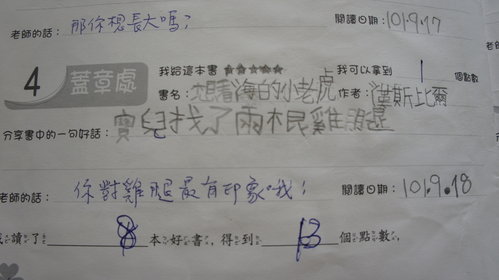 老師的話：那你想長大嗎？ 閱讀日期：101.9.17
4 蓋章處 我給這本書 ★★★★★ 我可以拿到 1 個點數
書名：想看海的小老虎 作者：漢斯比爾
分享書中的一句好話：寶兒找了兩根雞腿
老師的話：你對雞腿最有印象哦！ 閱讀日期：101.9.18
讀了 8 本好書，得到 13 個點數，